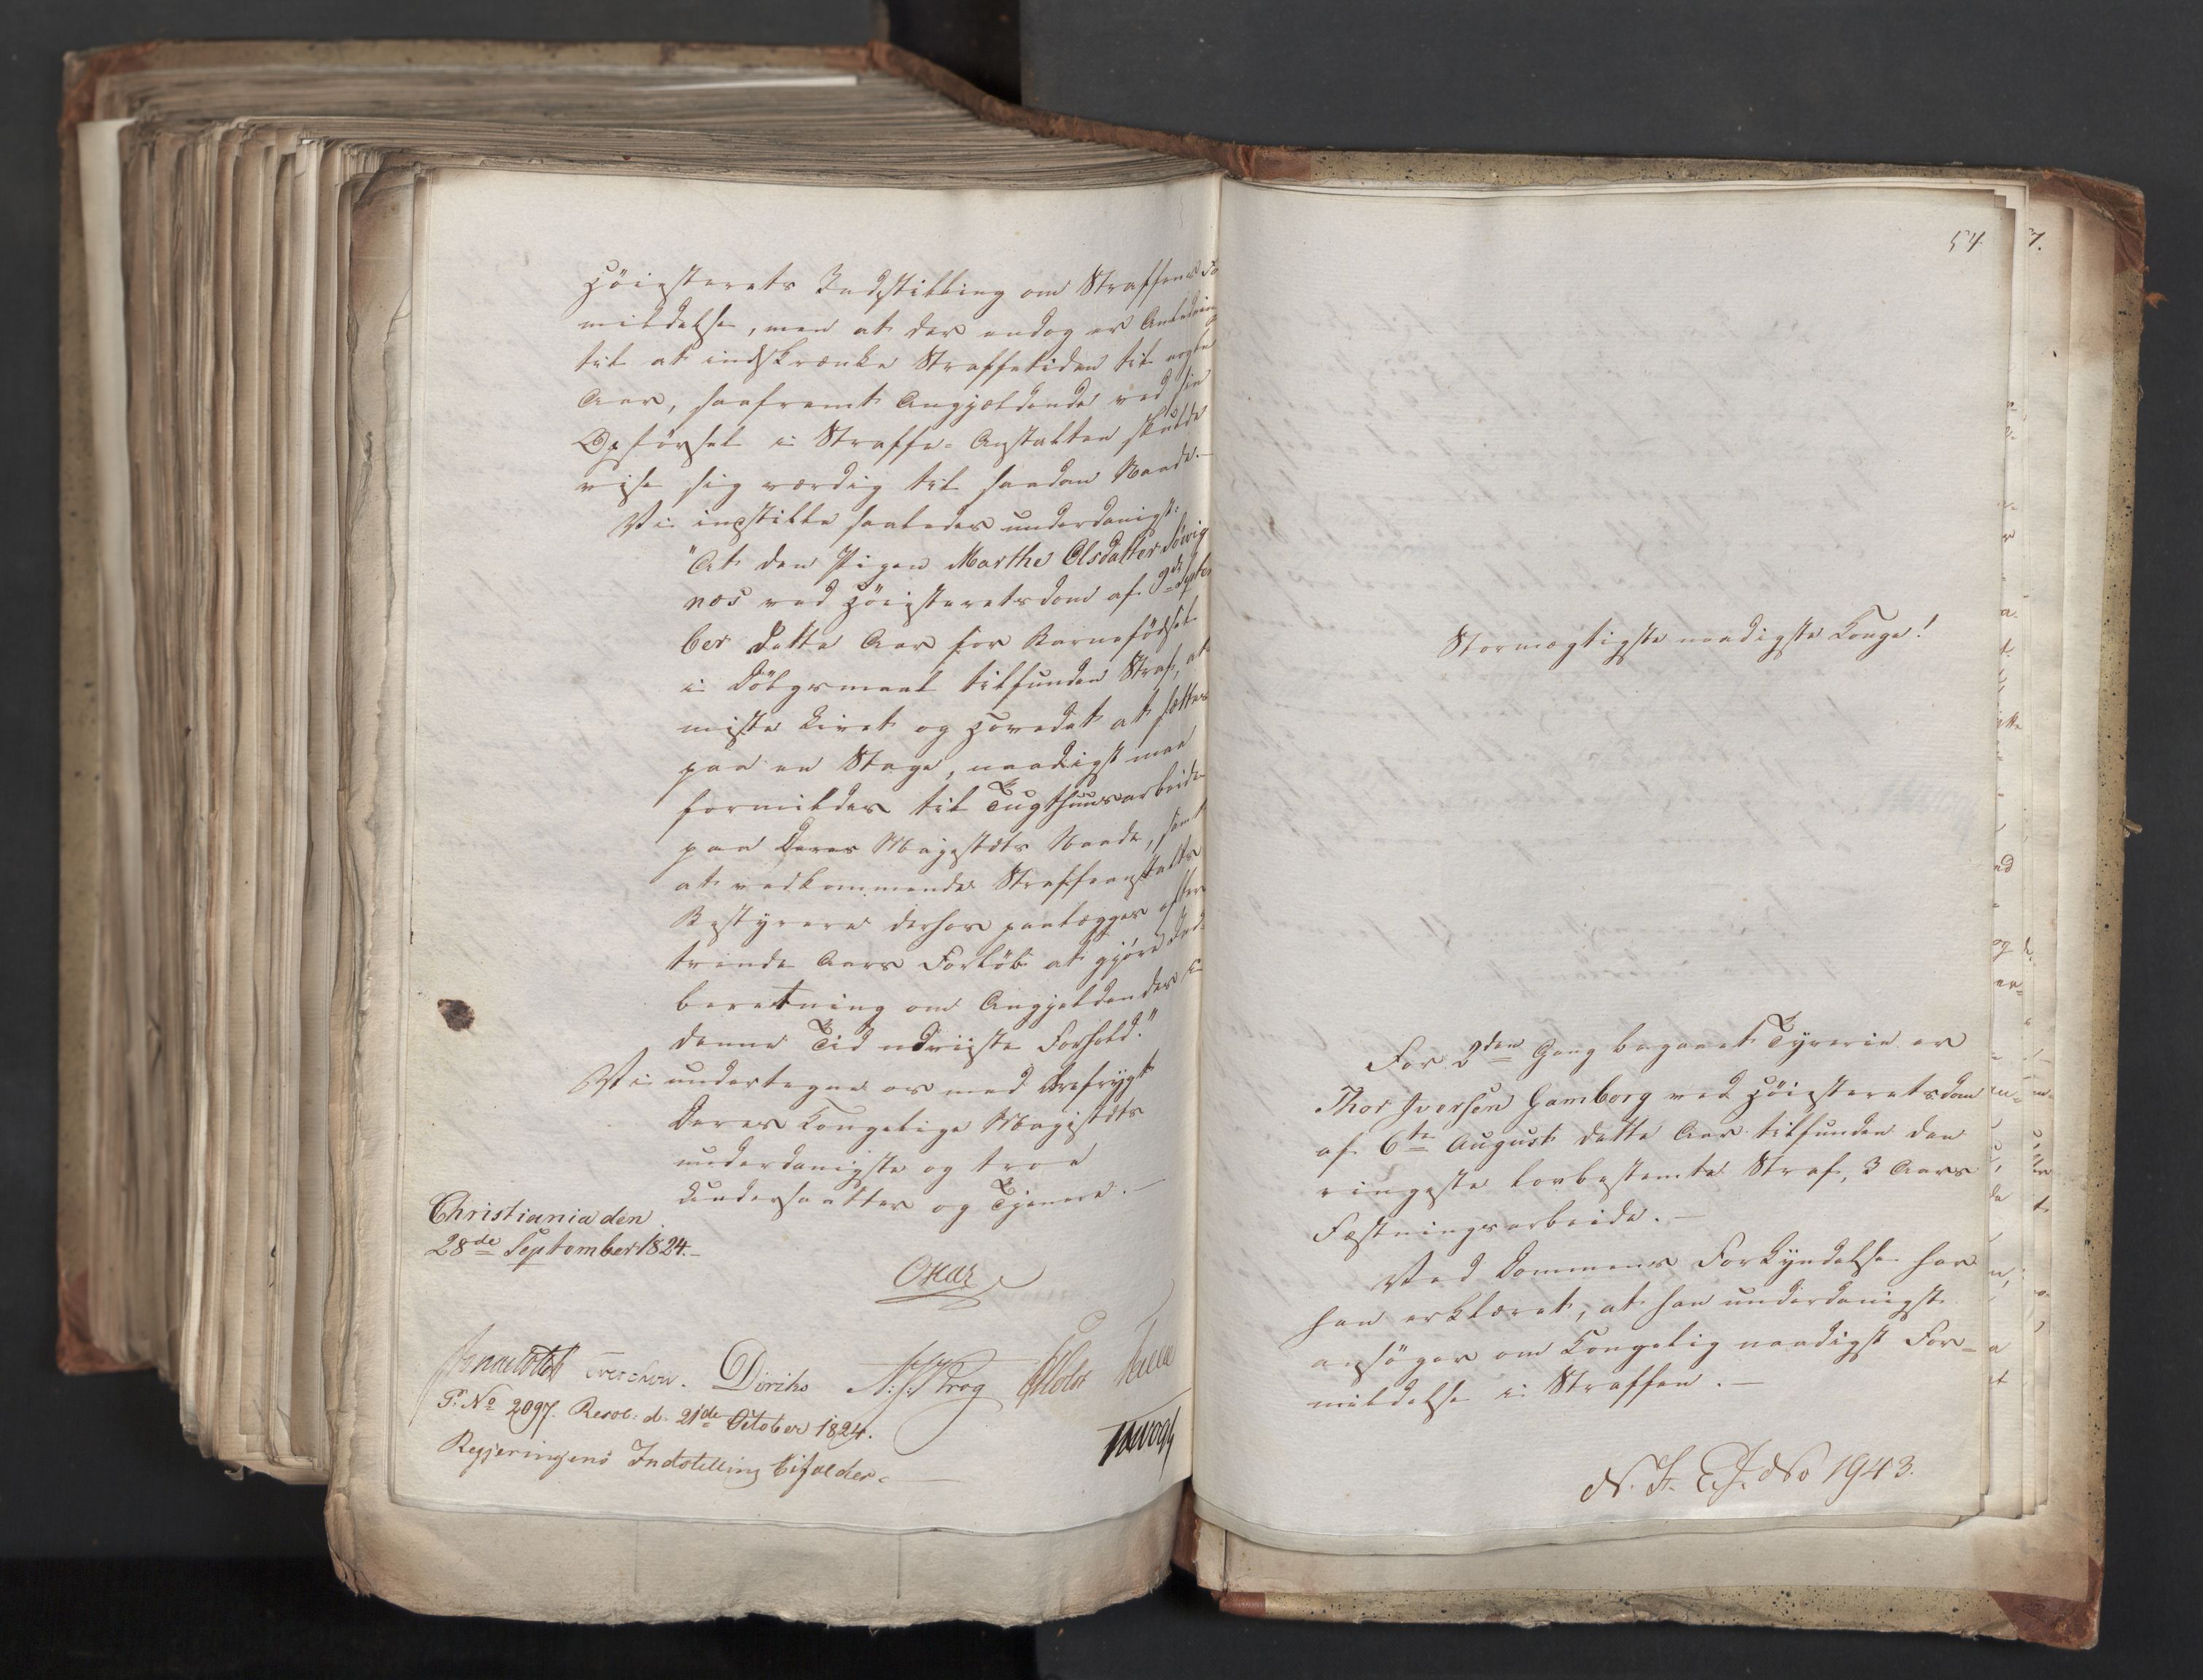 Høiesterets Indstilling om Straffens For
mildelse, men at der endog er Anledning
til at indskrænke Straffetiden til nogle
Aar, saafremt Angjældende ved sin
Opførsel i Straffe-Anstalten skulde
vise sig værdig til saadan Naade.-
Vi indstille saaledes underdanigst:
"At den Pigen Marthe Olsdatter Solvig
næs ved Høiesteretsdom af 9de Septem
ber dette Aar for Barnefødsel
i Dølgsmaal tilfundne Straf, at
miste Livet og Hovedet at sættes
paa en Stage, naadigst maa
formildes til Tugthuusarbeide
paa Deres Majestæts Naade, samt
at vedkommende Straffeanstalts
Bestyrere derhos paalægges efter
trende Aars Forløb at gjøre Ind-
beretning om Angjeldendes i
denne Tid udviiste Forhold."
Vi undertegne os med Ærefrygt
Deres Kongelige Majestæts
underdanigste og troe
Undersaatter og Tjenere.-
Christiania den
28de September 1824.-
Oscar
Sommerhielm Treschow. Diriks N: J: Krog Holst
P: No 2097. Resol: d. 21de October 1824.
Regjeringens Indstilling bifaldes.
54.
7.
Stormægtigste naadigste Konge!
For 2den Gang begaaet Tyverie er
Thor Iversen Gamborg ved Høiesteretsdom
af 6te August dette Aar tilfunden den
ringeste lovbestemte Straf, 3 Aars
Fæstningsarbeide.-
Ved Dommens Forkyndelse har
han erklæret, at han underdanigst
ansøger om Kongelig naadigst For-
mildelse i Straffen.-
N. F. E. J. No 1943.